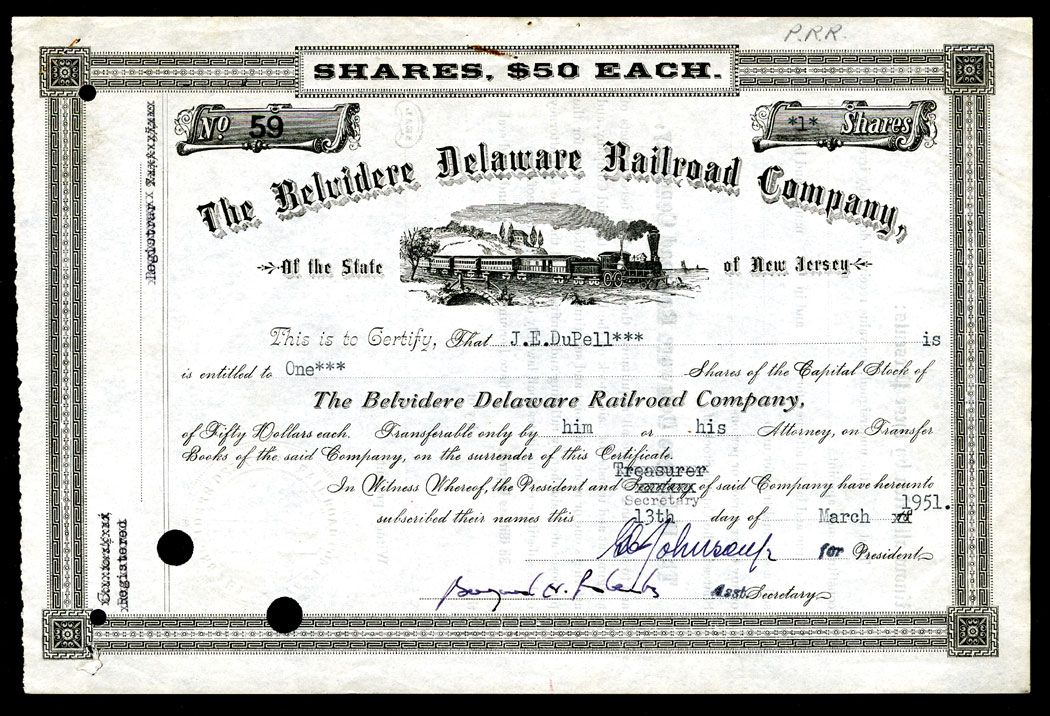 P.R.R.
SHARES, $50 EACH.
No 59
*1* Shares
The Belvidere Delaware Railroad Company,
Of the State of New Jersey
This is to Certify, That J.E.DuPell*** is
is entitled to One*** Shares of the Capital Stock of
The Belvidere Delaware Railroad Company,
of Fifty Dollars each. Transferable only by him or his Attorney, on Transfer
Books of the said Company, on the surrender of this Certificate.
Treasurer
In Witness Whereof, the President and Secretary of said Company have hereunto
Secretary
subscribed their names this 13th day of March 1951.
Johnson Jr for President
Asst Secretary
Registered